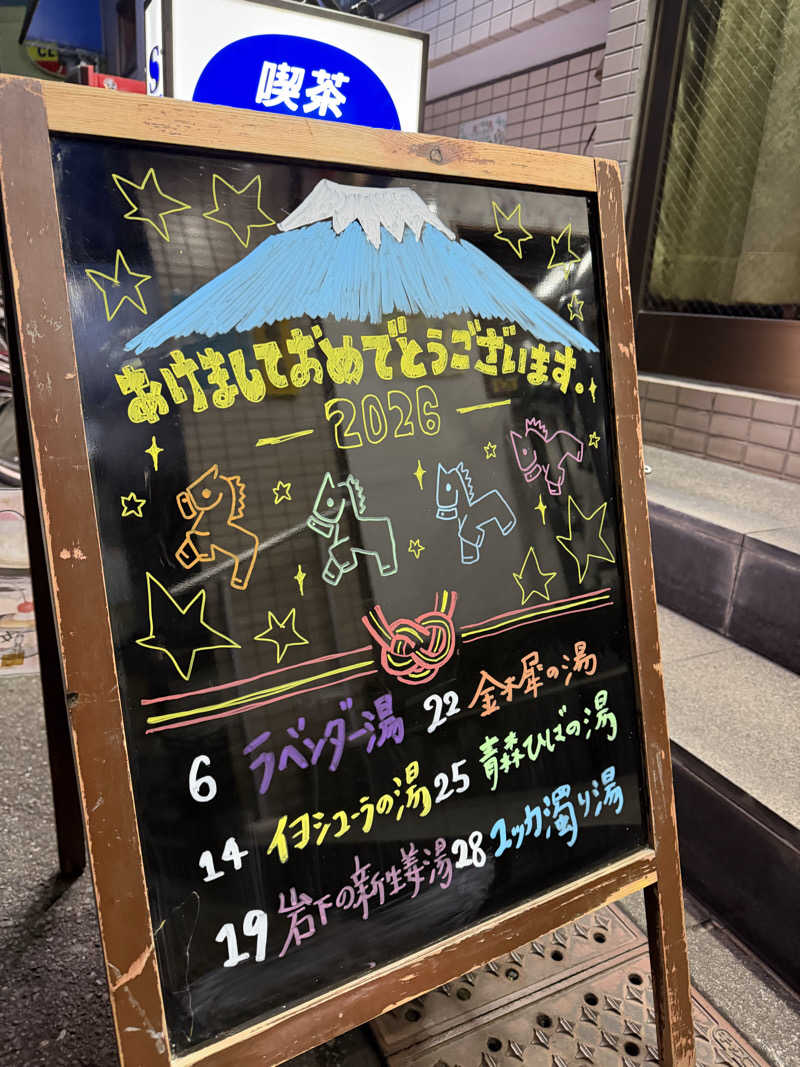 喫茶
あけましておめでとうございます。
2026
6 ラベンダー湯
14 イヨシコーラの湯
19 岩下の新生姜湯
22 金木犀の湯
25 青森ひばの湯
28 ユッカ濁り湯